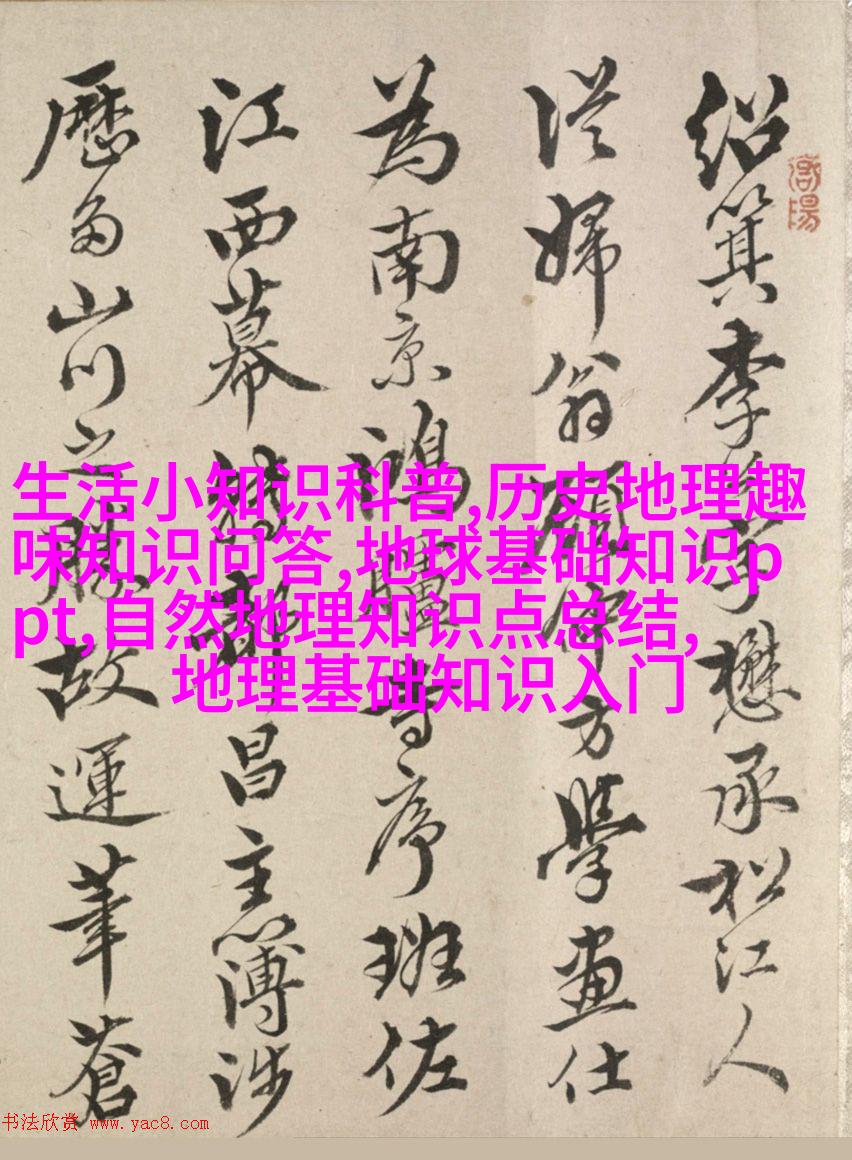 紹箕李字懋承松江人
從婦翁顧仲方學畫仕
為南京鴻臚寺序班佐
江西幕轉都昌主簿涉
歷多山川之勝故運筆蒼
生活小知识科普,历史地理趣
味知识问答,地球基础知识p
pt,自然地理知识点总结,
地理基础知识入门
书法欣赏 www.yac8.com